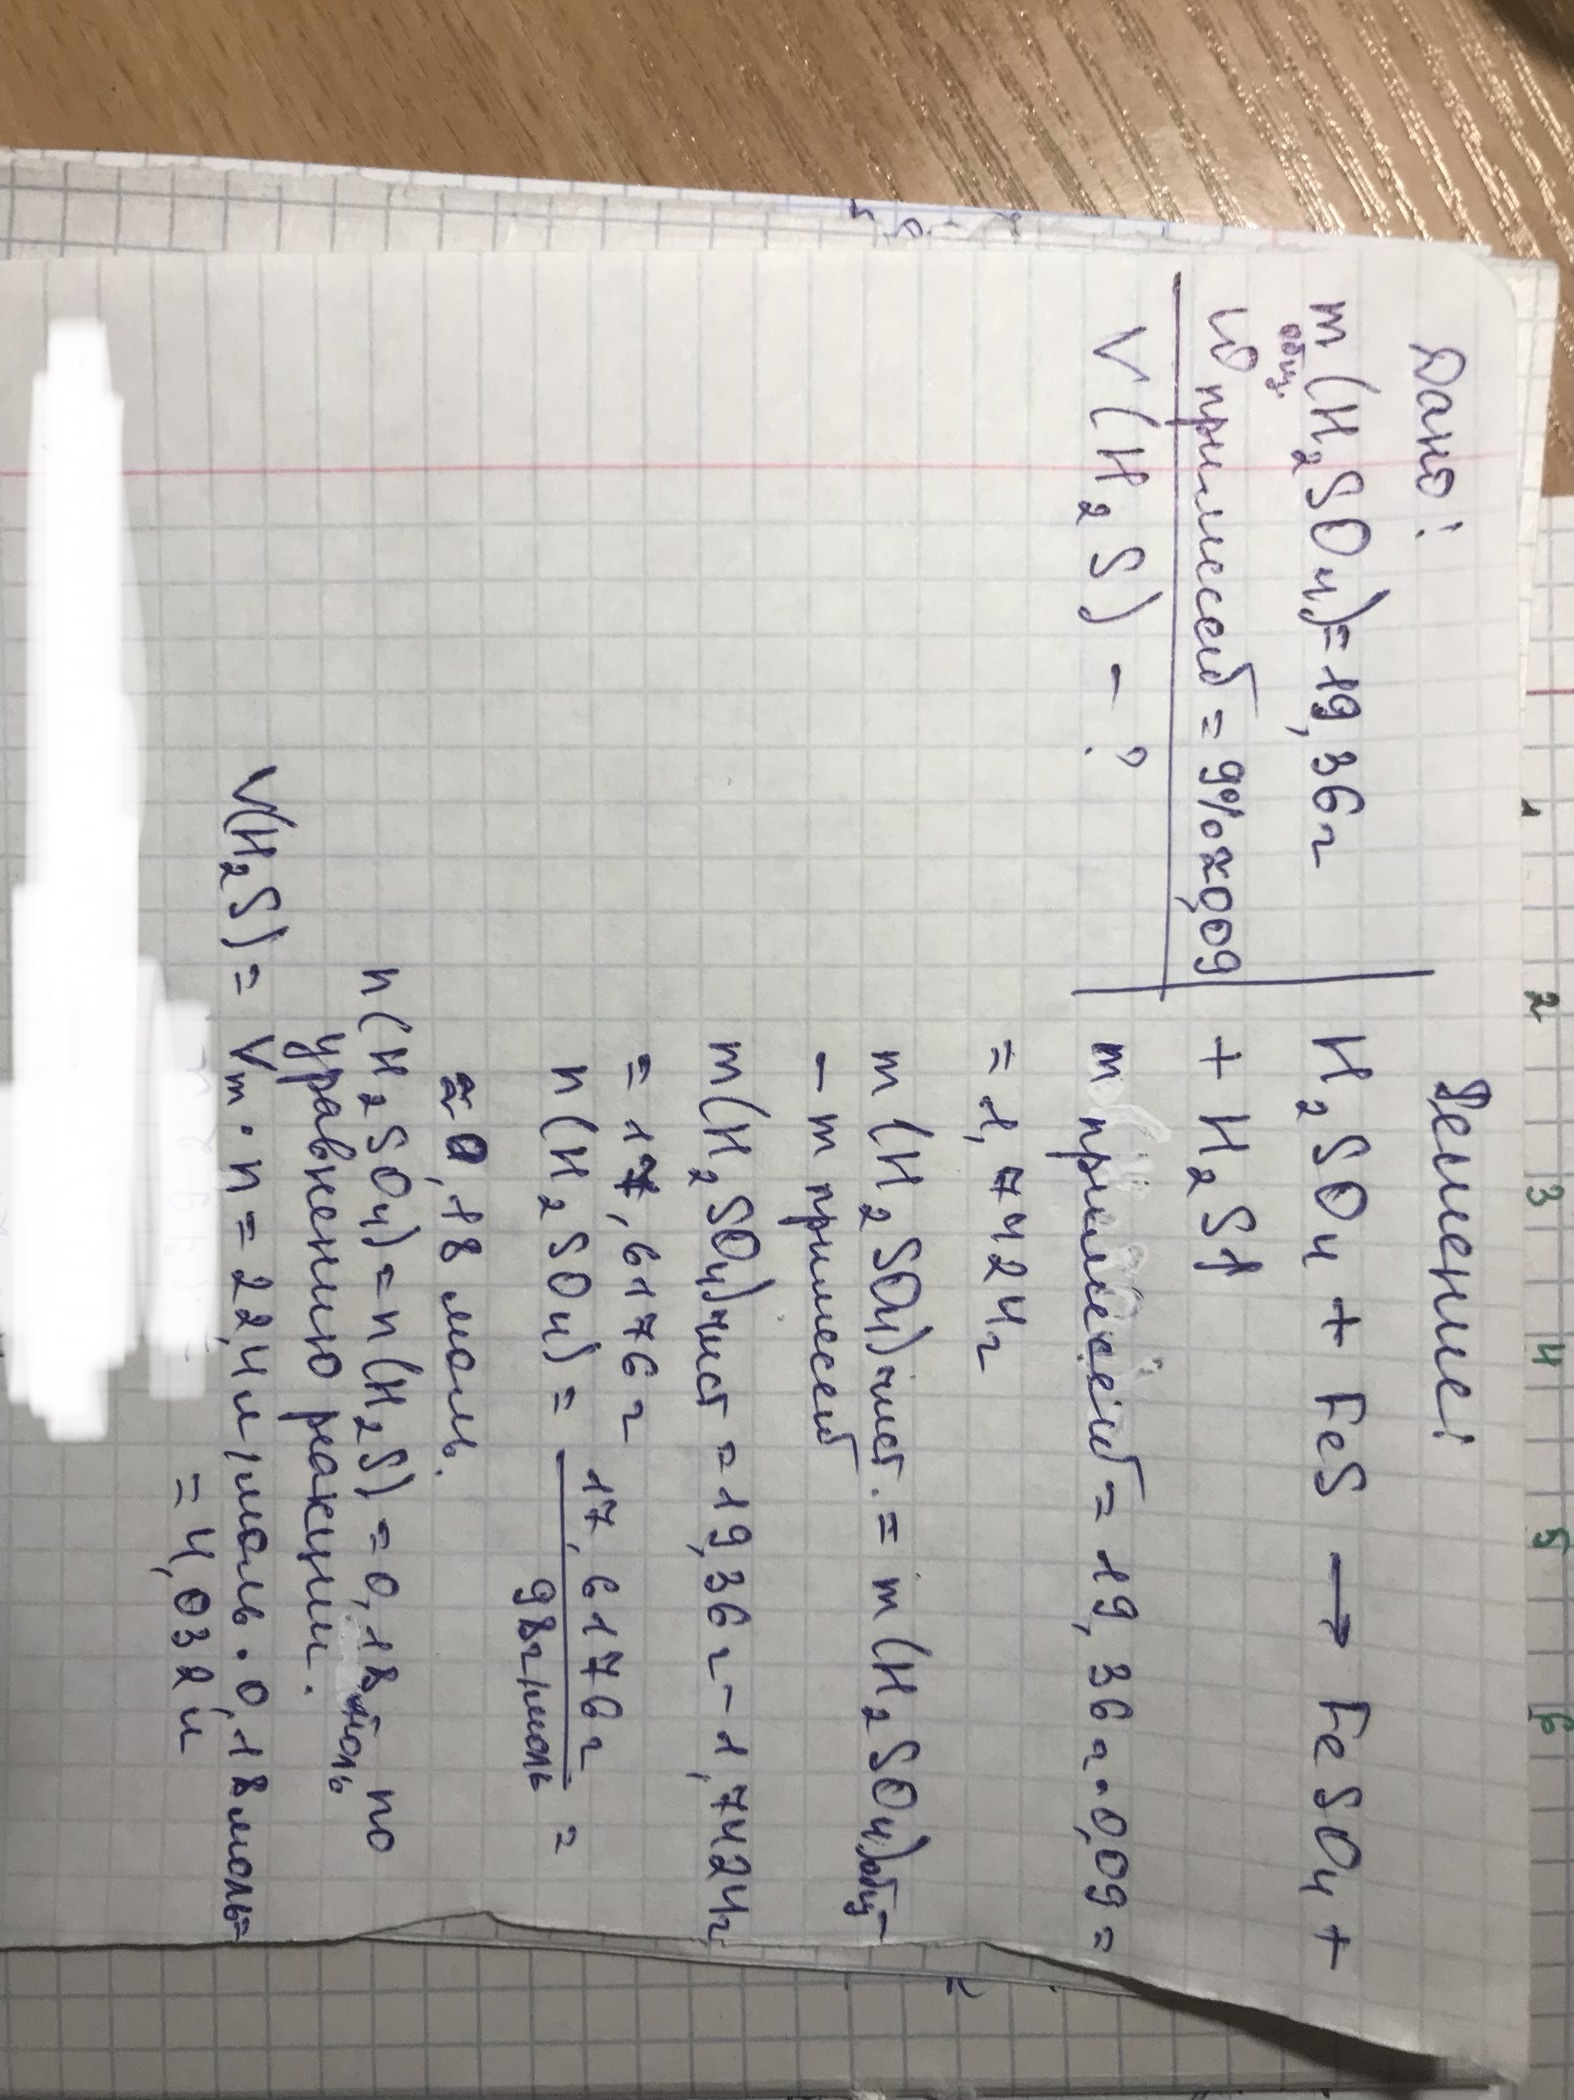 Дано:
m общ. (H2SO4)=19,36г
ω примесей = 9%≈0,09
V(H2S) - ?
Решение:
H2SO4 + FeS → FeSO4 +
+ H2S↑
m примесей = 19,36г·0,09=
= 1,7424г
m(H2SO4)чист. = m(H2SO4)общ-
- m примесей
m(H2SO4)чист = 19,36г-1,7424г
= 17,6176г
n(H2SO4) = 17,6176г / 98г/моль =
≈ 0,18 моль.
n(H2SO4)=n(H2S)=0,18моль по
уравнению реакции.
V(H2S)= Vm·n=22,4л/моль·0,18моль=
= 4,032л
1 2 3 4 5 6